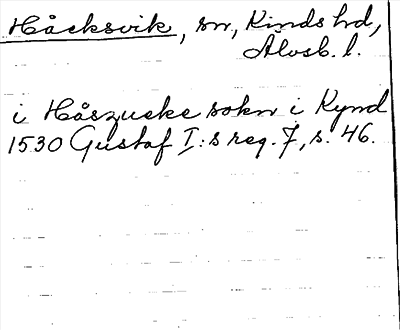 Håcksvik, sn, Kinds hd,
Älvsb. l.
i Håszueke sokn i Kynd
1530 Gustaf I:s reg. 7, s. 46.